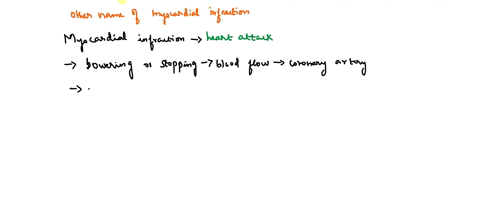 other name of myocardial infraction
Myocardial infraction → heart attack
→ lowering or stopping → blood flow → coronary artery
→ .